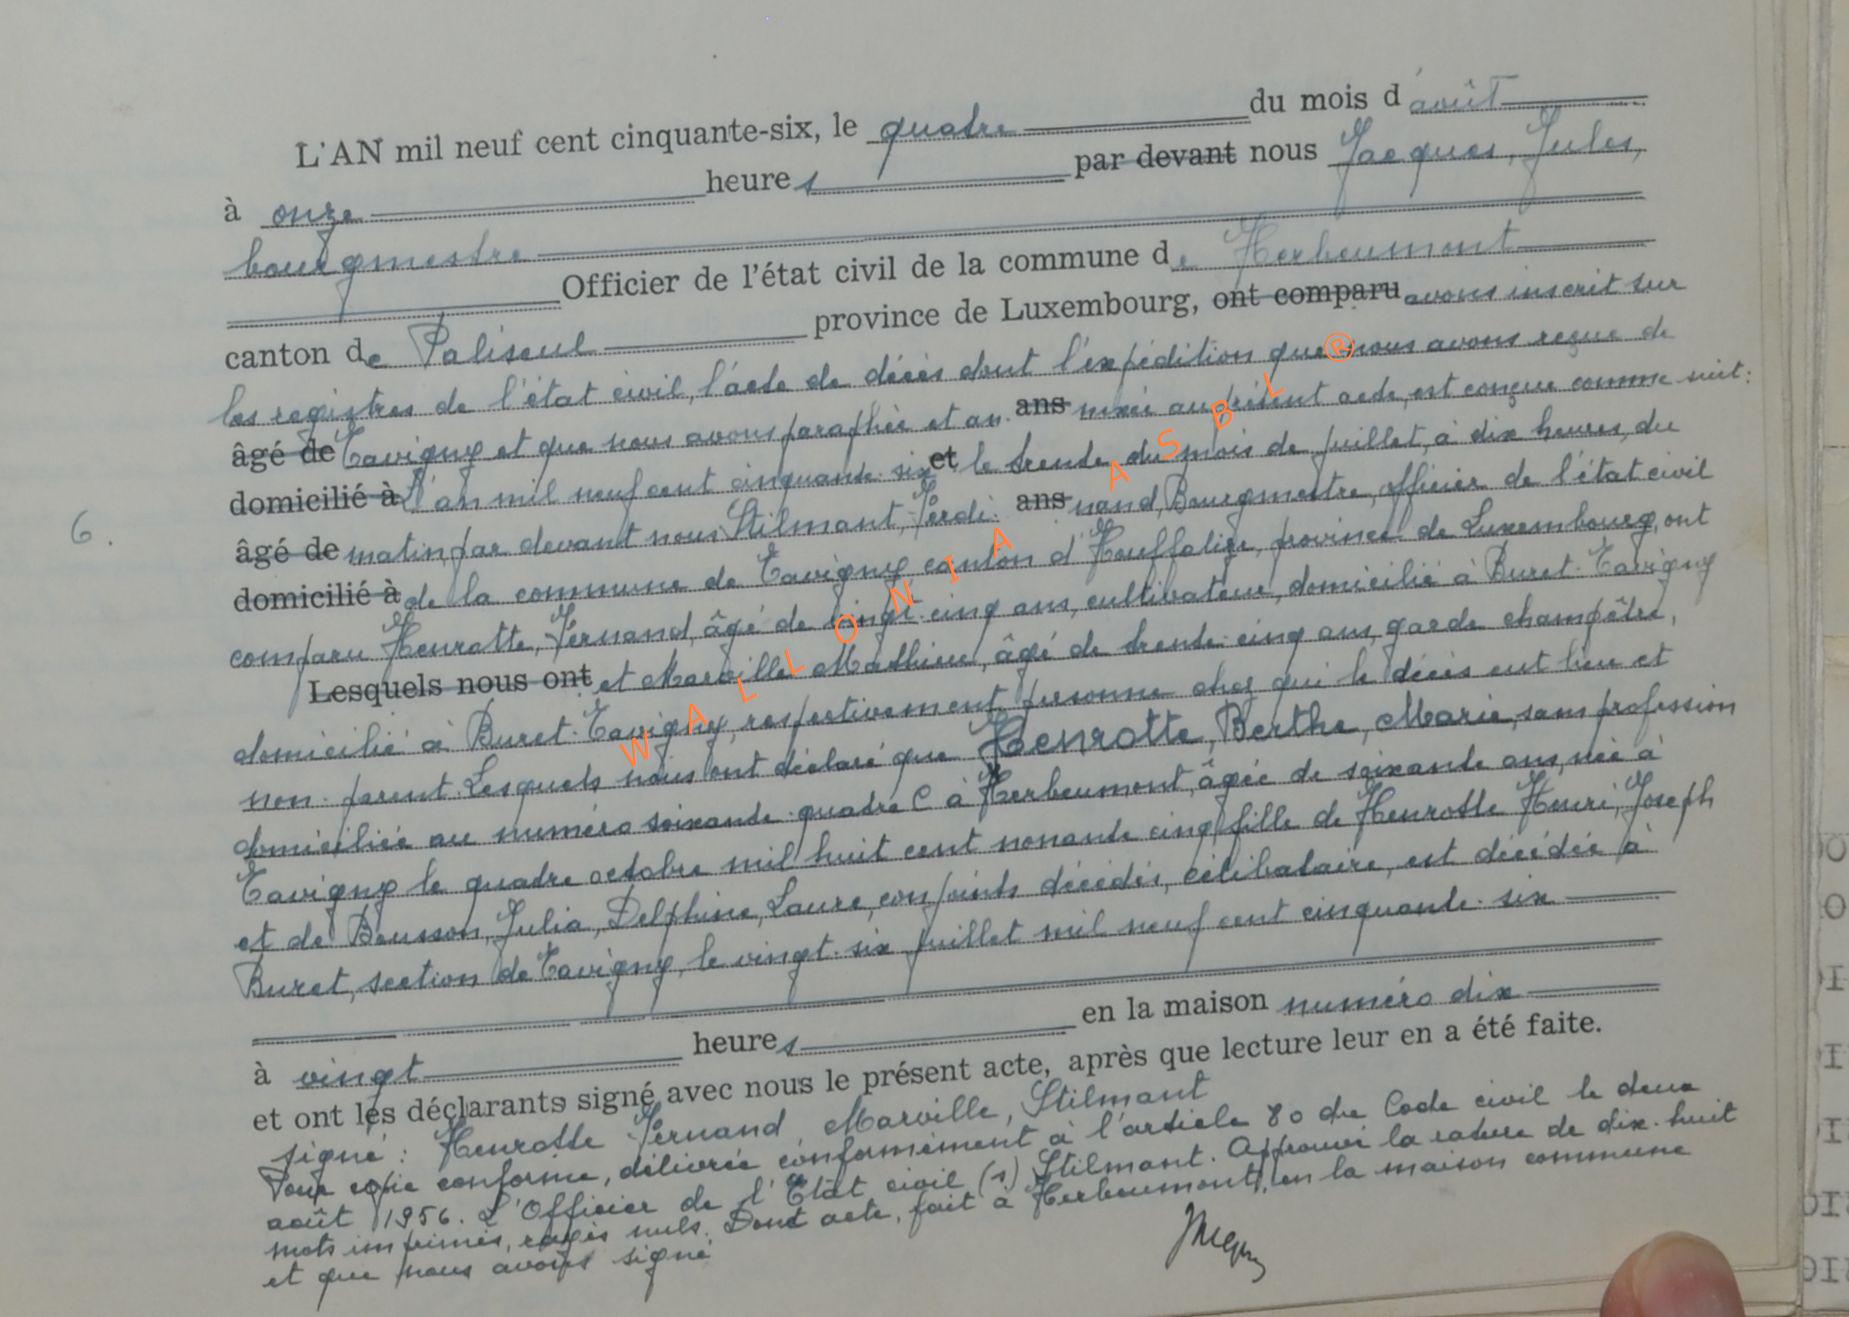 L'AN mil neuf cent cinquante-six, le quatre du mois d'août
à onze heures par devant nous Jacques, Jules,
bourgmestre
Officier de l'état civil de la commune de Herbeumont
canton de Paliseul province de Luxembourg, ont comparu avons inscrit sur
les registres de l'état civil, l'acte de décès dont l'expédition que nous avons reçue de
âgé de Tavigny et que nous avons paraphée et an ans nexée au présent acte, est conçue comme suit:
domicilié à L'an mil neuf cent cinquante-six et le trente du mois de juillet, à dix heures, du
âgé de matin, par devant nous Stilmant, Ferdi- ans nand, Bourgmestre, officier de l'état civil
domicilié à de la commune de Tavigny canton d'Houffalize, province de Luxembourg, ont
comparu Henrotte, Fernand, âgé de vingt-cinq ans, cultivateur, domicilié à Buret-Tavigny
Lesquels nous ont et Marville Mathieu, âgé de trente-cinq ans, garde champêtre,
domicilié à Buret-Tavigny, respectivement personne chez qui le décès eut lieu et
non-parent. Lesquels nous ont déclaré que Henrotte, Berthe, Marie, sans profession
domiciliée au numéro soixante-quatre C à Herbeumont, âgée de soixante ans, née à
Tavigny le quatre octobre mil huit cent nonante cinq, fille de Henrotte Henri, Joseph
et de Beusson, Julia, Delphine, Laure, conjoints décédés, célibataire, est décédée à
Buret, section de Tavigny, le vingt-six juillet mil neuf cent cinquante-six
6.
à vingt heures en la maison numéro dix
et ont les déclarants signé avec nous le présent acte, après que lecture leur en a été faite.
signé : Henrotte Fernand, Marville, Stilmant
Pour copie conforme, délivrée conformément à l'article 80 du Code civil le deux
août 1956. L'Officier de l'Etat civil (s) Stilmant. Approuvé la rature de dix-huit
mots imprimés, rayés nuls. Dont acte, fait à Herbeumont, en la maison commune
et que nous avons signé
WALLONIA ASBL ®